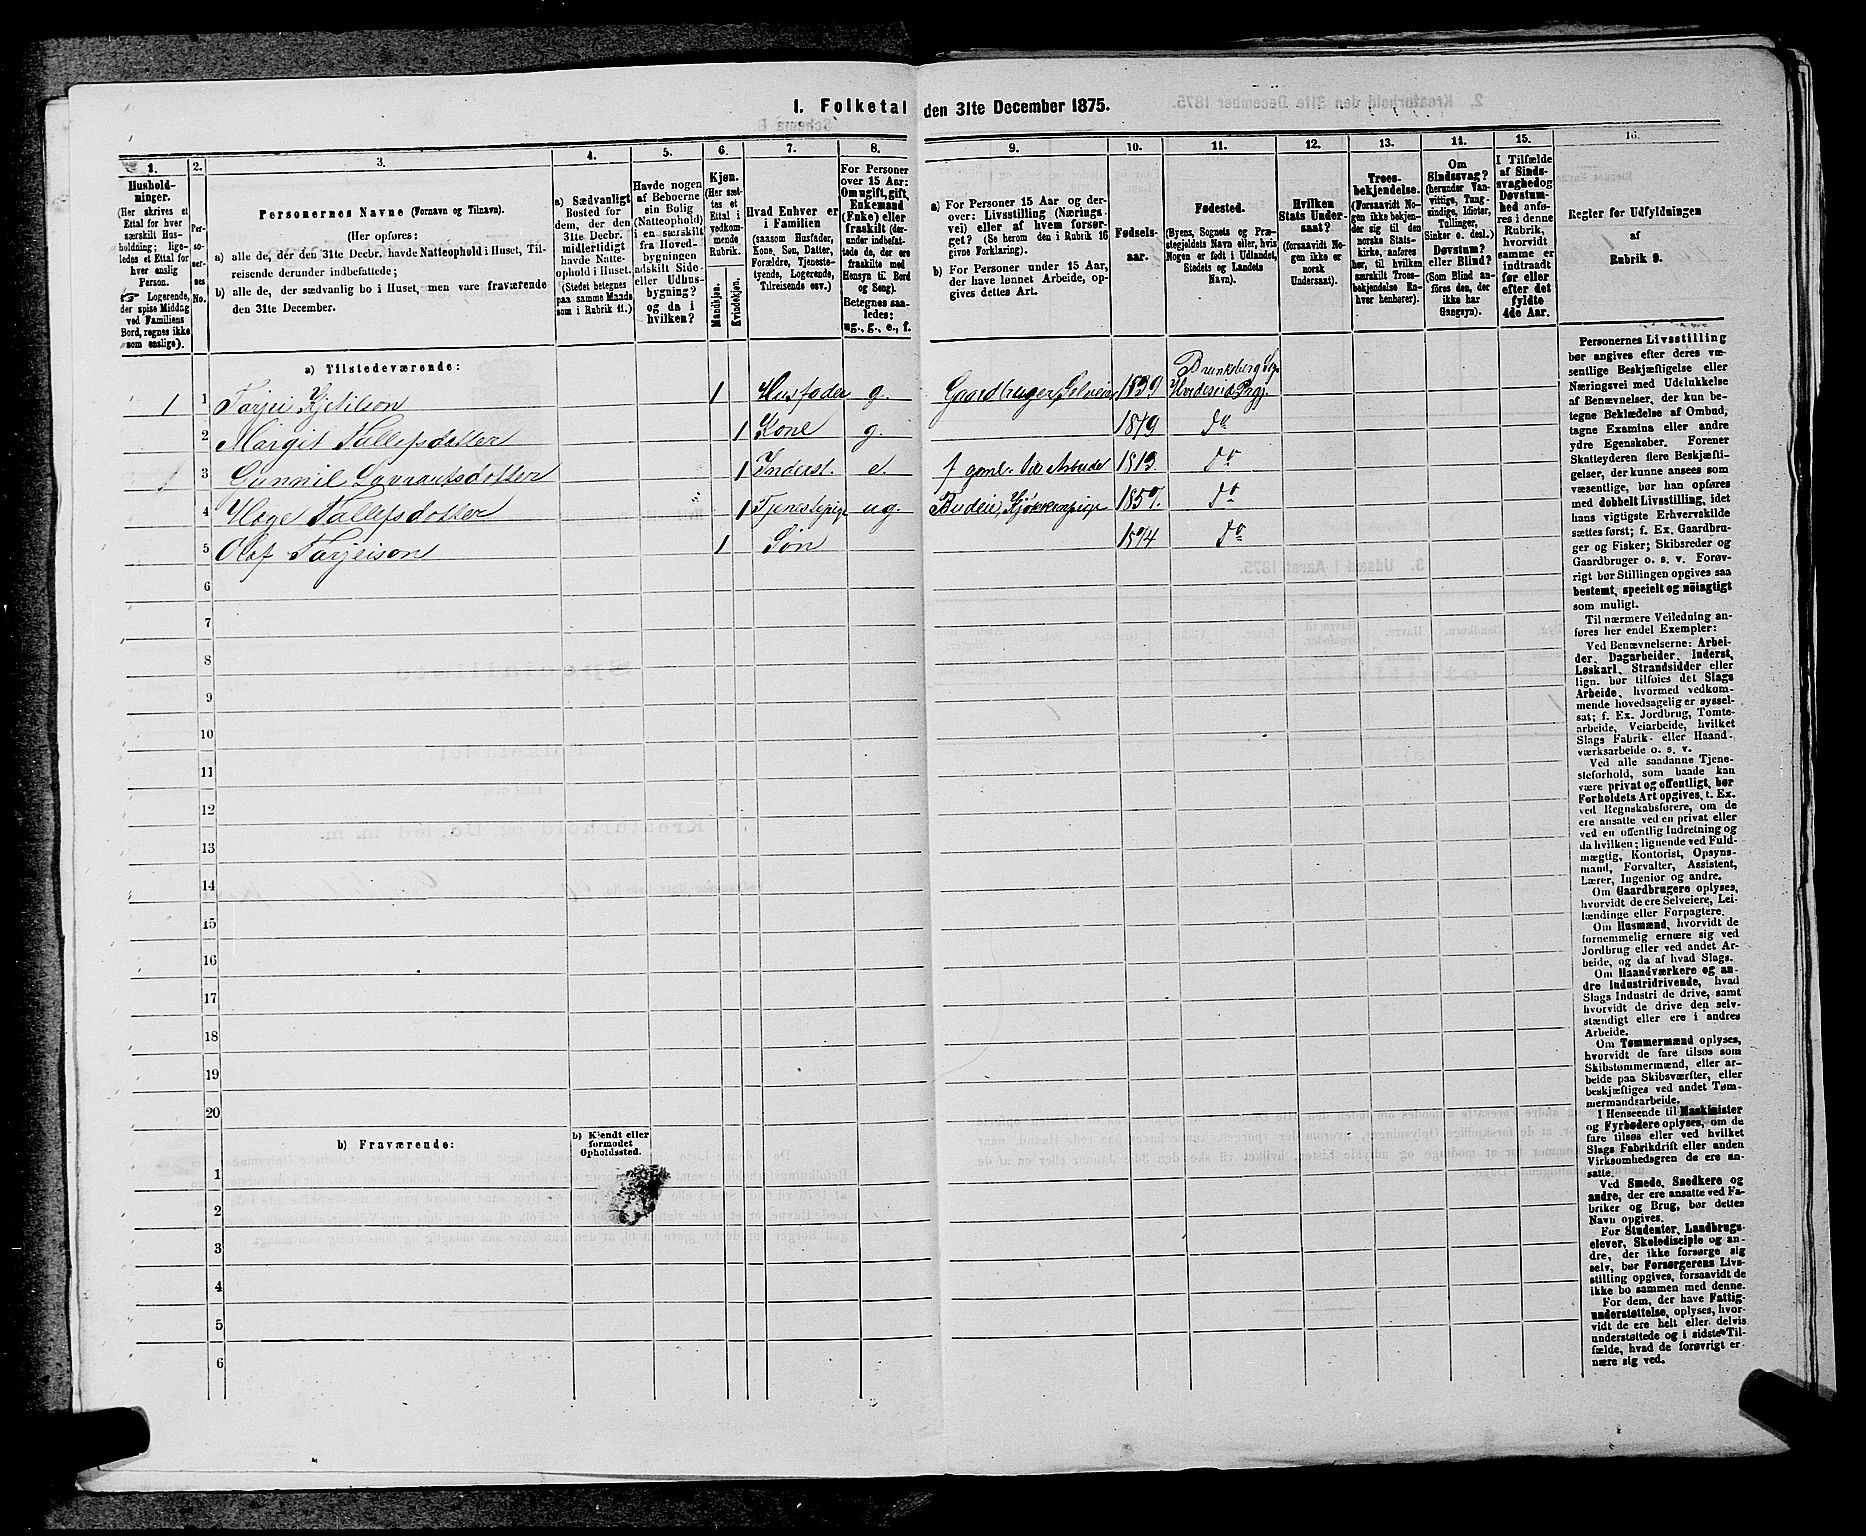 1. Folketal den 31te December 1875.
1.
Hushold-
ninger.
(Her skrives et
Ettal for hver
særskilt Hus-
holdning; lige-
ledes et Ettal for
hver enslig
Person.
☞ Logerende,
der spise Middag
ved Familiens
Bord, regnes ikke
som enslige).
2.
Per-
so-
ner-
nes
No.
3.
Personernes Navne (Fornavn og Tilnavn).
(Her opføres:
a) alle de, der den 31te Decbr. havde Natteophold i Huset, Til-
reisende derunder indbefattede;
b) alle de, der sædvanlig bo i Huset, men vare fraværende
den 31te December.
4.
a) Sædvanligt
Bosted for
dem, der den
31te Decbr.
midlertidigt
havde Natte-
ophold i Huset.
(Stedet betegnes
paa samme Maade
som i Rubrik 11.)
5.
Havde nogen
af Beboerne
sin Bolig
(Natteophold)
i en særskilt
fra Hoved-
bygningen
adskilt Side-
eller Udhus-
bygning?
og da i
hvilken?
6.
Kjøn.
(Her sæt-
tes et
Ettal i
vedkom-
mende
Rubrik.
Mandkjøn.
Kvindekjøn.
7.
Hvad Enhver er
i Familien
(saasom Husfader,
Kone, Søn, Datter,
Forældre, Tjeneste-
tyende, Logerende,
Tilreisende osv.)
8.
For Personer
over 15 Aar:
Om ugift, gift,
Enkemand
(Enke) eller
fraskilt (der-
under indbefat-
tede de, der ere
fraskilte med
Hensyn til Bord
og Seng).
Betegnes saa-
ledes:
ug., g., e., f.
9.
a) For Personer 15 Aar og der-
over: Livsstilling (Nærings-
vei) eller af hvem forsør-
get? (Se herom den i Rubrik 16
givne Forklaring).
b) For Personer under 15 Aar,
der have lønnet Arbeide, op-
gives dettes Art.
10.
Fødsels-
aar.
11.
Fødested.
(Byens, Sognets og Præ-
stegjeldets Navn eller, hvis
Nogen er født i Udlandet,
Stedets og Landets
Navn).
12.
Hvilken
Stats Under-
saat?
(forsaavidt No-
gen ikke er
norsk
Undersaat).
13.
Troes-
bekjendelse.
(Forsaavidt No-
gen ikke bekjen-
der sig til den
norske Stats-
kirke, anføres
her, til hvilken
særskilt Troes-
bekjendelse En-
hver henhører).
14.
Om
Sindssvag?
(herunder Van-
vittige, Tung-
sindige, Idioter,
Tullinger,
Sinker o. desl.)
Døvstum?
eller Blind?
(Som Blind an-
føres den, der
ikke har
Gangsyn).
15.
I Tilfælde
af Sinds-
svaghed og
Døvstum-
hed anfø-
res i denne
Rubrik,
hvorvidt
samme er
indtraadt
før eller
efter det
fyldte
4de Aar.
16.
Regler for Udfyldningen
af
Rubrik 9.
a) Tilstedeværende:
1 1 Tarjei Kjetilson 1 Husfader g. Gaardbruger, Selveier 1839 Brunkeberg Sg. Hvideseid Prgj.
2 Margit Tallefsdotter 1 Kone g. 1849 Do
1 3 Gunnil Lavrantsdotter 1 Inderst. e. 1813 Do
4 Hæge Tallefsdotter 1 Tjenestepige ug. Budeie, Kjøkkenpige 1857. Do
5 Olaf Tarjeison 1 Søn 1874 Do
6
7
8
9
10
11
12
13
14
15
16
17
18
19
20
b) Fraværende:
b) Kjendt eller
formodet
Opholdssted.
1
2
3
4
5
6
Personernes Livsstilling
bør angives efter deres væ-
sentlige Beskjæftigelse eller
Næringsvei med Udelukkelse
af Benævnelser, der kun be-
tegne Beklædelse af Ombud,
tagne Examina eller andre
ydre Egenskaber. Forener
Skatteyderen flere Beskjæfti-
gelser, der kunne ansees som
væsentlige, bør han opføres
med dobbelt Livsstilling, idet
hans vigtigste Erhvervskilde
sættes først; f. Ex. Gaardbru-
ger og Fisker; Skibsreder og
Gaardbruger o. s. v. Forøv-
rigt bør Stillingen opgives saa
bestemt, specielt og nöiagtigt
som muligt.
Til nærmere Veiledning an-
føres her endel Exempler:
Ved Benævnelserne: Arbei-
der, Dagarbeider, Inderst,
Løskarl, Strandsidder eller
lign. bør tilføies det Slags
Arbeide, hvormed vedkom-
mende hovedsagelig er syssel-
sat; f. Ex. Jordbrug, Tomte-
arbeide, Veiarbeide, hvilket
Slags Fabrik- eller Haand-
værksarbeide o. s. v.
Ved alle saadanne Tjene-
steforhold, som baade kan
være privat og offentligt, bør
Forholdets Art opgives, t. Ex.
ved Regnskabsførere, om de
ere ansatte ved en privat eller
ved en offentlig Indretning og
da hvilken; lignende ved Fuld-
mægtig, Kontorist, Opsyns-
mand, Forvalter, Assistent,
Lærer, Ingeniør og andre.
Om Gaardbrugere oplyses,
hvorvidt de ere Selveiere, Lei-
lændinge eller Forpagtere.
Om Husmænd, hvorvidt de
fornemmelig ernære sig ved
Jordbrug eller ved andet Ar-
beide, og da af hvad Slags.
Om Haandværkere og an-
dre Industridrivende, hvad
Slags Industri de drive, samt
hvorvidt de drive den selv-
stændigt eller ere i andres
Arbeide.
Om Tømmermænd oplyses,
hvorvidt de fare tilsøs som
Skibstømmermænd, eller ar-
beide paa Skibsværfter, eller
beskjæftiges ved andet Tøm-
mermandsarbeide.
I Henseende til Maskinister
og Fyrbødere oplyses, om de
fare tilsøs eller ved hvilket
Slags Fabrikdrift eller anden
Virksomhedsgren de ere an-
satte.
Ved Smede, Snedkere og
andre, der ere ansatte ved Fa-
briker og Brug, bør dettes
Navn opgives.
For Studenter, Landbrugs-
elever, Skoledisciple og an-
dre, der ikke forsørge sig
selv, bør Forsørgerens Livs-
stilling opgives, forsaavidt de
ikke bo sammen med denne.
For dem, der have Fattig-
understøttelse, oplyses, hvor-
vidt de ere helt eller delvis
understøttede og i sidste Til-
fælde, hvad de forøvrigt er-
nære sig ved.